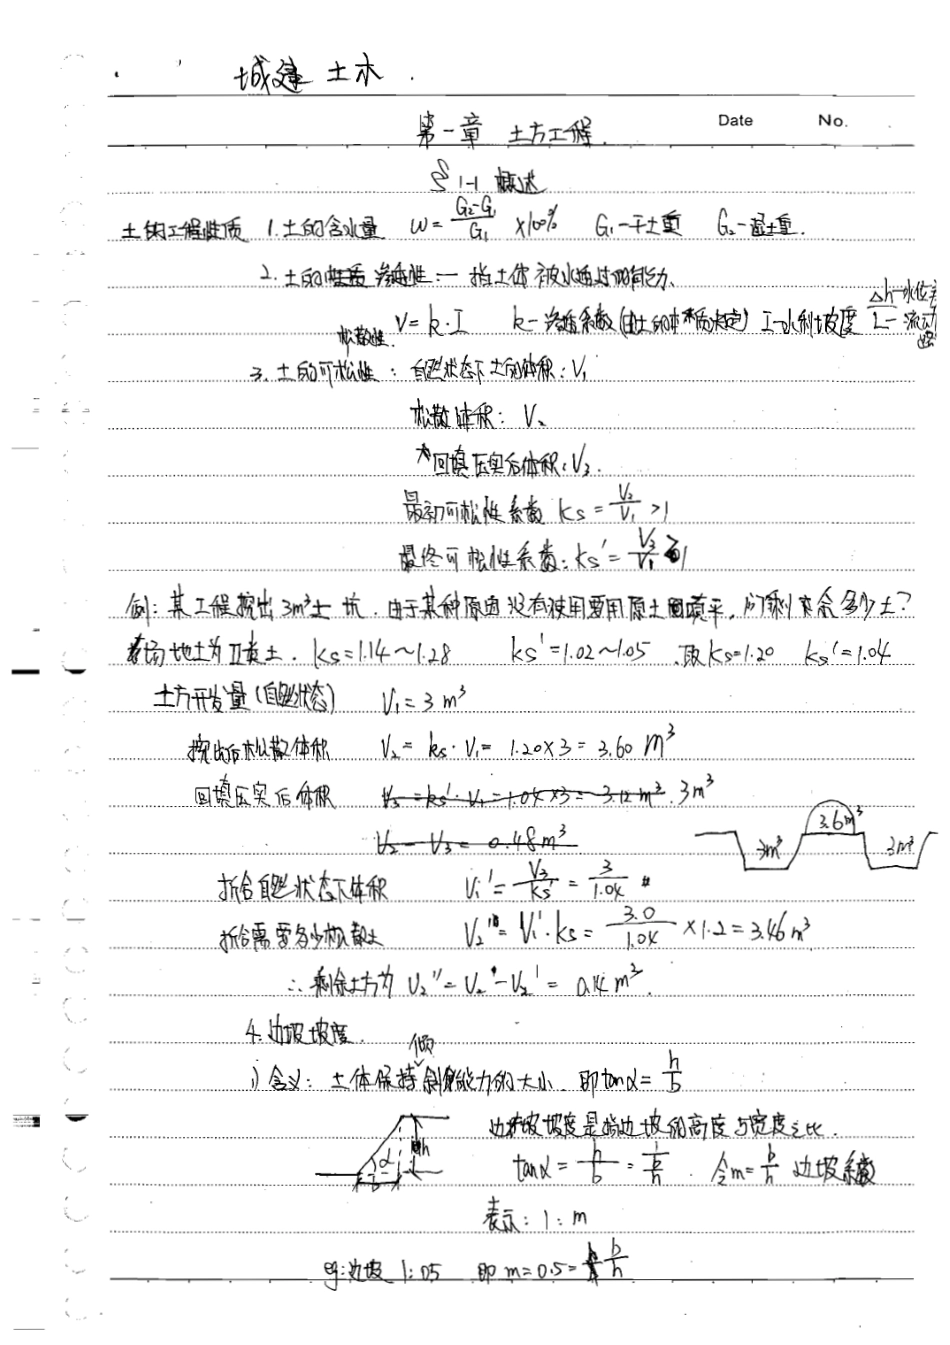 城建 土木.
Date No.
第一章 土方工程.
§1-1 概述
土的工程性质 1.土的含水量 W=(G₂-G₁)/G₁ ×100% G₁-干土重 G₂-湿土重.
2.土的性质 渗透性:一 指土体被水透过的能力、
V=k·I k-渗透系数(由土的本质决定) I-水利坡度 Δh-水位差/L-流动
松散性.
3.土的可松性: 自然状态下土的体积:V₁
松散体积: V₂
回填压实后体积:V₃.
最初可松性系数 ks=V₂/V₁ >1
最终可松性系数:ks'=V₃/V₁ ≥1
例:某工程挖出3m³土坑.由于某种原因没有使用要用原土回填平,问剩余多少土?
场地土为Ⅱ类土. ks=1.14~1.28 ks'=1.02~1.05 .取ks=1.20 ks'=1.04
土方开发量(自然状态) V₁=3m³
挖出后松散体积 V₂=ks·V₁=1.20×3=3.60 m³
回填压实后体积 V₃=ks'·V₁=1.04×3=3.12m³. 3m³
V₂-V₃=0.48m³
3.6m³
3m³ 3m³
折合自然状态下体积 V₁'=V₃/ks'=3/1.04
折合需要多少松散土 V₂'=V₁'·ks=3.0/1.04 ×1.2=3.46m³
∴剩余土方为 V₂''=V₂-V₂'=0.14m³.
4.边坡坡度.
1)含义: 土体保持倾斜能力的大小 即tanα=h/b
边坡坡度是指边坡的高度与宽度之比.
h
α
b
tanα=h/b=1/(b/h) . 令m=b/h 边坡系数
表示:1:m
eg:边坡 1:0.5 即m=0.5=b/h